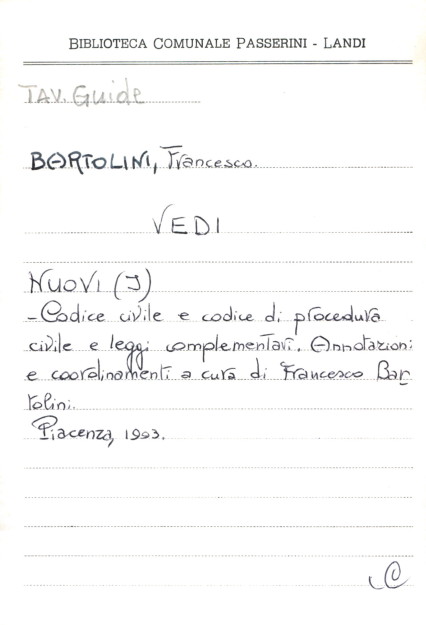 BIBLIOTECA COMUNALE PASSERINI - LANDI
TAV. Guide
BARTOLINI, Francesco.
VEDI
NUOVI (I)
- Codice civile e codice di procedura
civile e leggi complementari. Annotazioni
e coordinamenti a cura di Francesco Bar
tolini.
Piacenza, 1993.